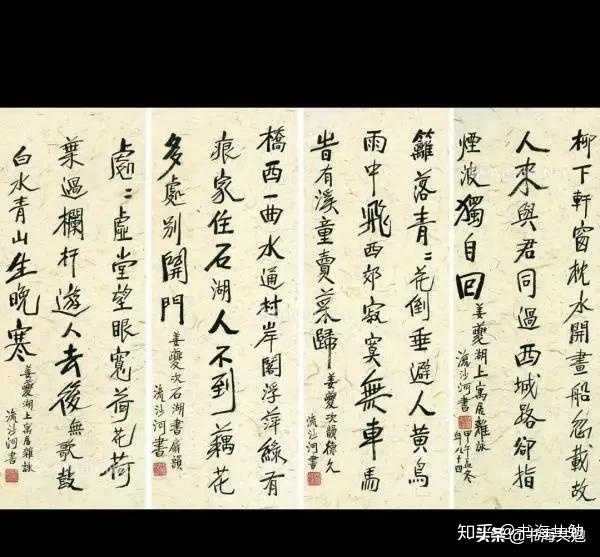 柳下軒窗枕水開畫船忽載故
人來與君同過西城路卻指
煙波獨自回
姜夔湖上寓居雜詠
流沙河書
甲午孟冬
年八十四
籬落青〻花倒垂避人黃鳥
雨中飛西郊寂寞無車馬
旹有溪童賣菜歸
姜夔次韻德久
流沙河書
橋西一曲水通村岸閣浮萍綠有
痕家住石湖人不到藕花
多處別開門
姜夔次石湖書扇韻
流沙河書
處〻虛堂望眼寬荷花荷
葉過欄杆遊人去後無歌鼓
白水青山生晚寒
姜夔湖上寓居雜詠
流沙河書
知乎 @书海共勉
头条 @书海共勉